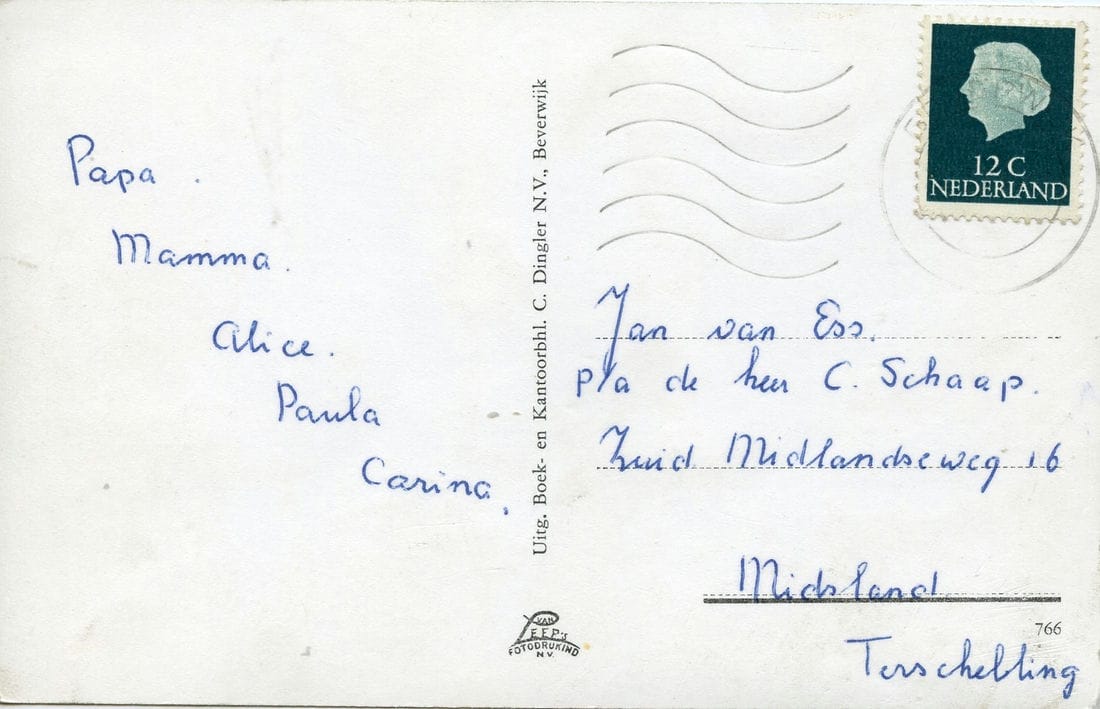 Papa.
Mamma.
Alice.
Paula
Carina.
Uitg. Boek- en Kantoorbhl. C. Dingler N.V., Beverwijk
VAN
LEEP'S
FOTODRUKIND
N.V.
12 C
NEDERLAND
Jan van Ess.
p/a de heer C. Schaap.
Zuid Midlandseweg 16
Midsland
766
Terschelling